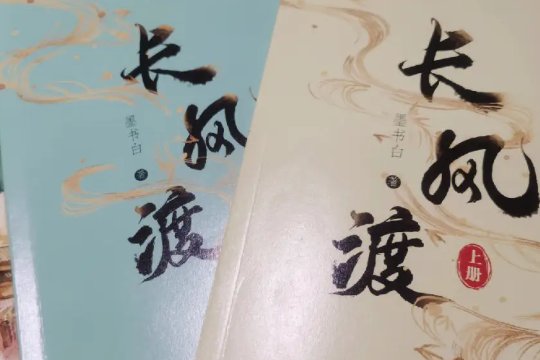 长风渡
墨书白
著
长风渡
墨书白
著
上册